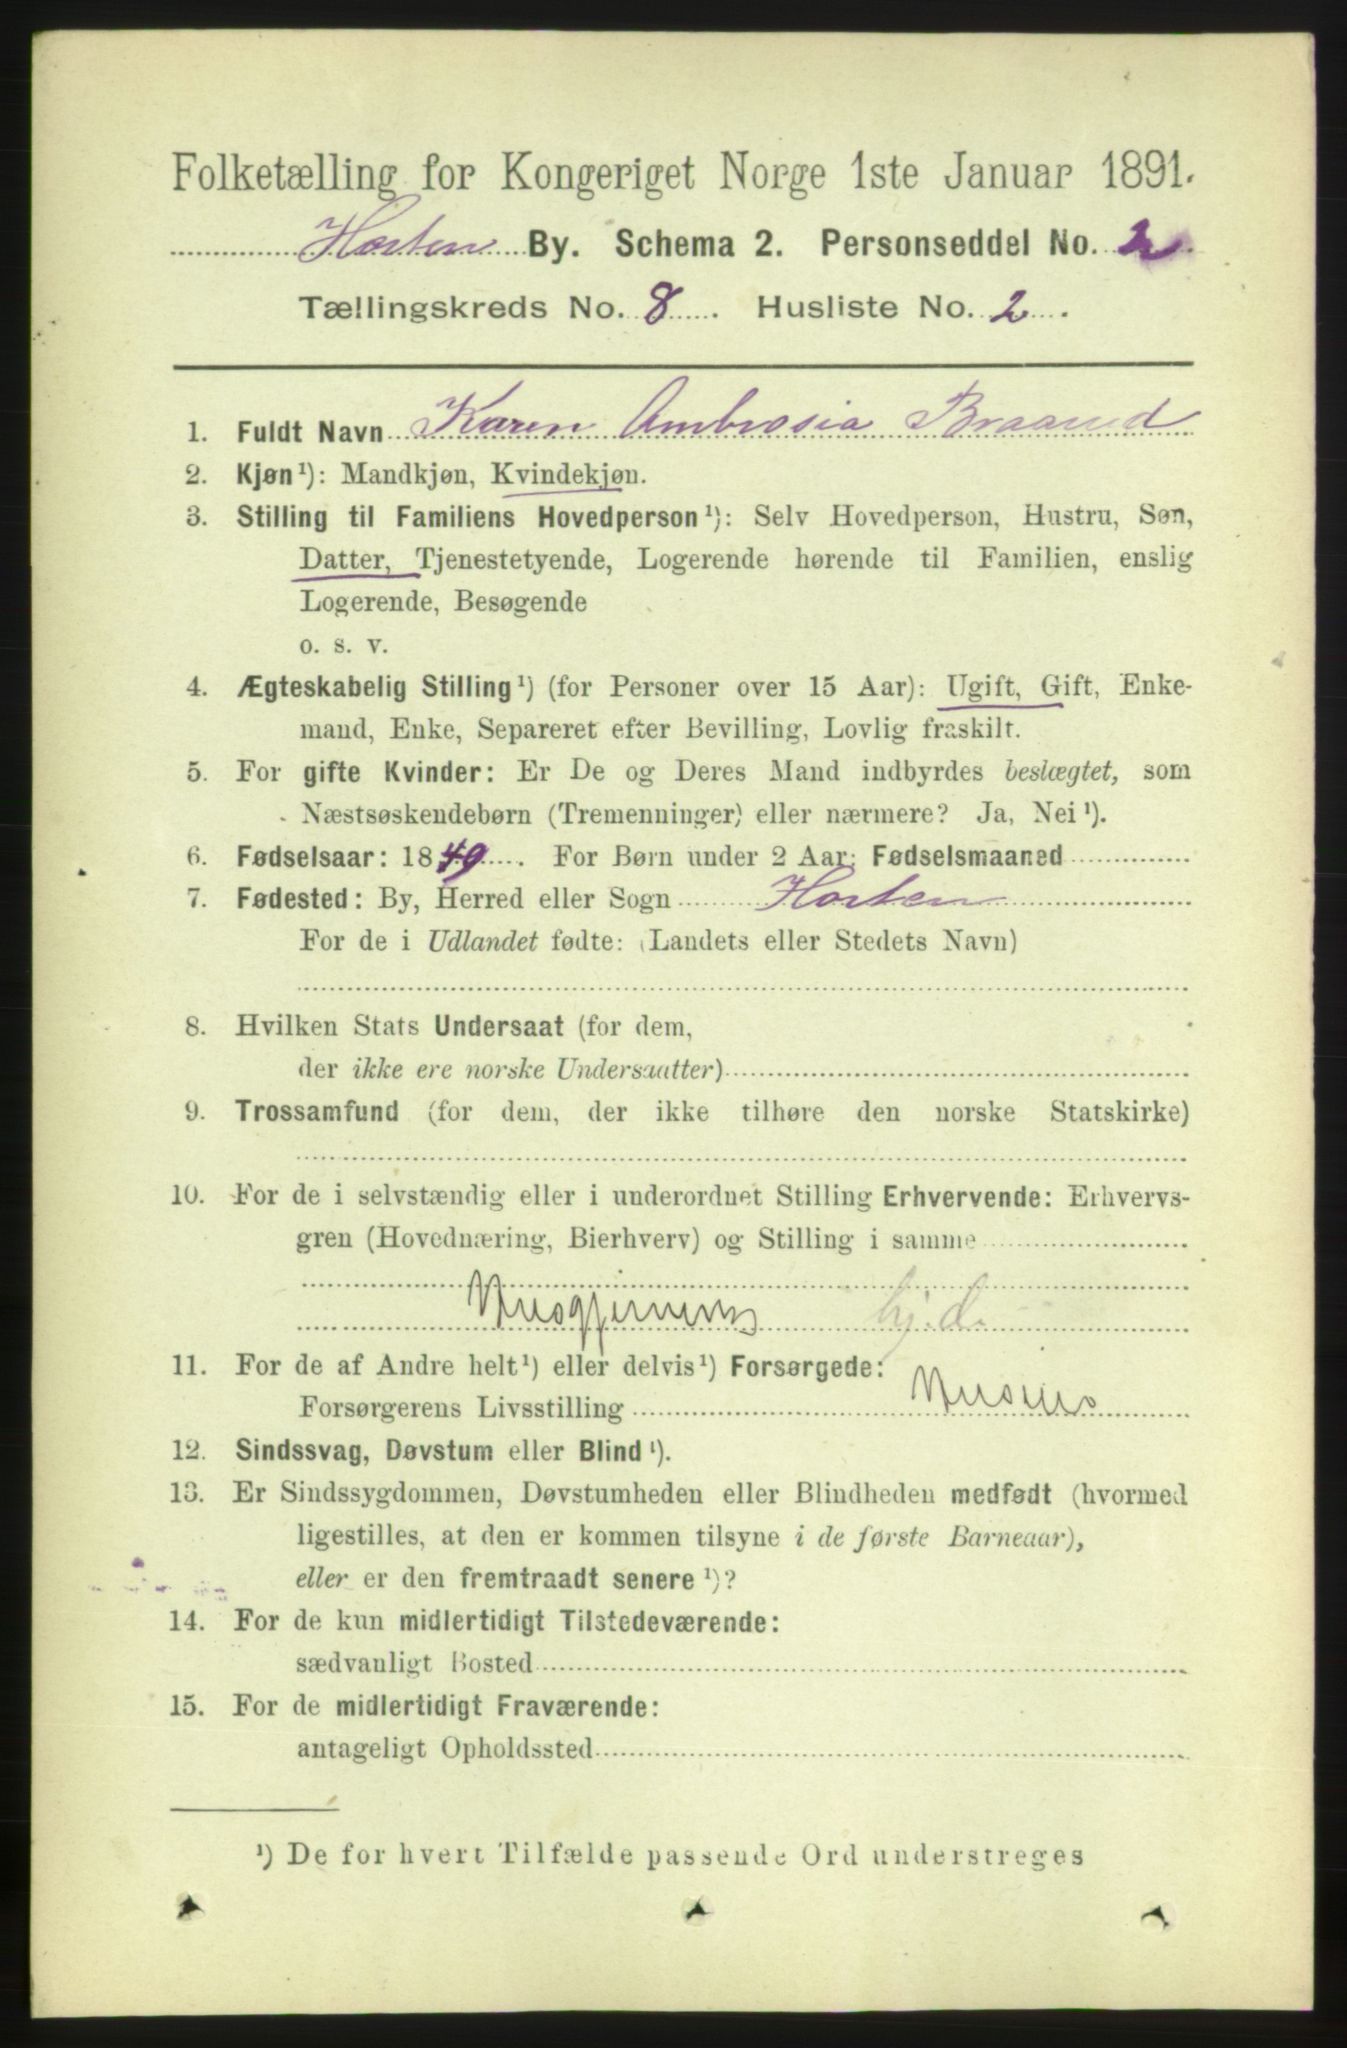 Folketælling for Kongeriget Norge 1ste Januar 1891.
Horten By. Schema 2. Personseddel No. 2.
Tællingskreds No. 8. Husliste No. 2.
1. Fuldt Navn Karen Ambrosia Braarud
2. Kjøn¹): Mandkjøn, Kvindekjøn.
3. Stilling til Familiens Hovedperson¹): Selv Hovedperson, Hustru, Søn,
Datter, Tjenestetyende, Logerende hørende til Familien, enslig
Logerende, Besøgende
o. s. v.
4. Ægteskabelig Stilling¹) (for Personer over 15 Aar): Ugift, Gift, Enke-
mand, Enke, Separeret efter Bevilling, Lovlig fraskilt.
5. For gifte Kvinder: Er De og Deres Mand indbyrdes beslægtet, som
Næstsøskendebørn (Tremenninger) eller nærmere? Ja, Nei¹).
6. Fødselsaar: 1849. For Børn under 2 Aar: Fødselsmaaned
7. Fødested: By, Herred eller Sogn Horten
For de i Udlandet fødte: (Landets eller Stedets Navn)
8. Hvilken Stats Undersaat (for dem,
der ikke ere norske Undersaatter)
9. Trossamfund (for dem, der ikke tilhøre den norske Statskirke)
10. For de i selvstændig eller i underordnet Stilling Erhvervende: Erhvervs-
gren (Hovednæring, Bierhverv) og Stilling i samme
Husgjerning hj. d.
11. For de af Andre helt¹) eller delvis¹) Forsørgede:
Forsørgerens Livsstilling
12. Sindssvag, Døvstum eller Blind¹).
13. Er Sindssygdommen, Døvstumheden eller Blindheden medfødt (hvormed
ligestilles, at den er kommen tilsyne i de første Barneaar),
eller er den fremtraadt senere¹)?
14. For de kun midlertidigt Tilstedeværende:
sædvanligt Bosted
15. For de midlertidigt Fraværende:
antageligt Opholdssted
¹) De for hvert Tilfælde passende Ord understreges